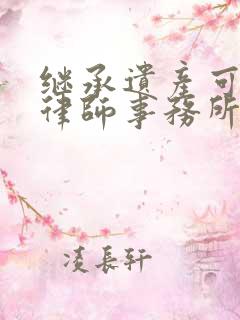 继承遺產可
律師事務所
凌長轩